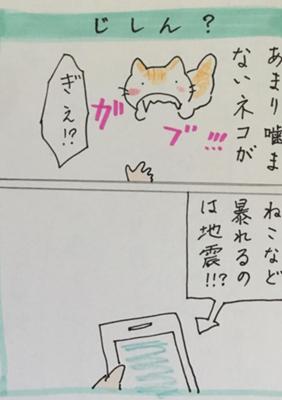 じしん？
あまり噛ま
ないネコが
ガブ!!!
ぎぇ!?
ねこなど
暴れるの
は地震!!?